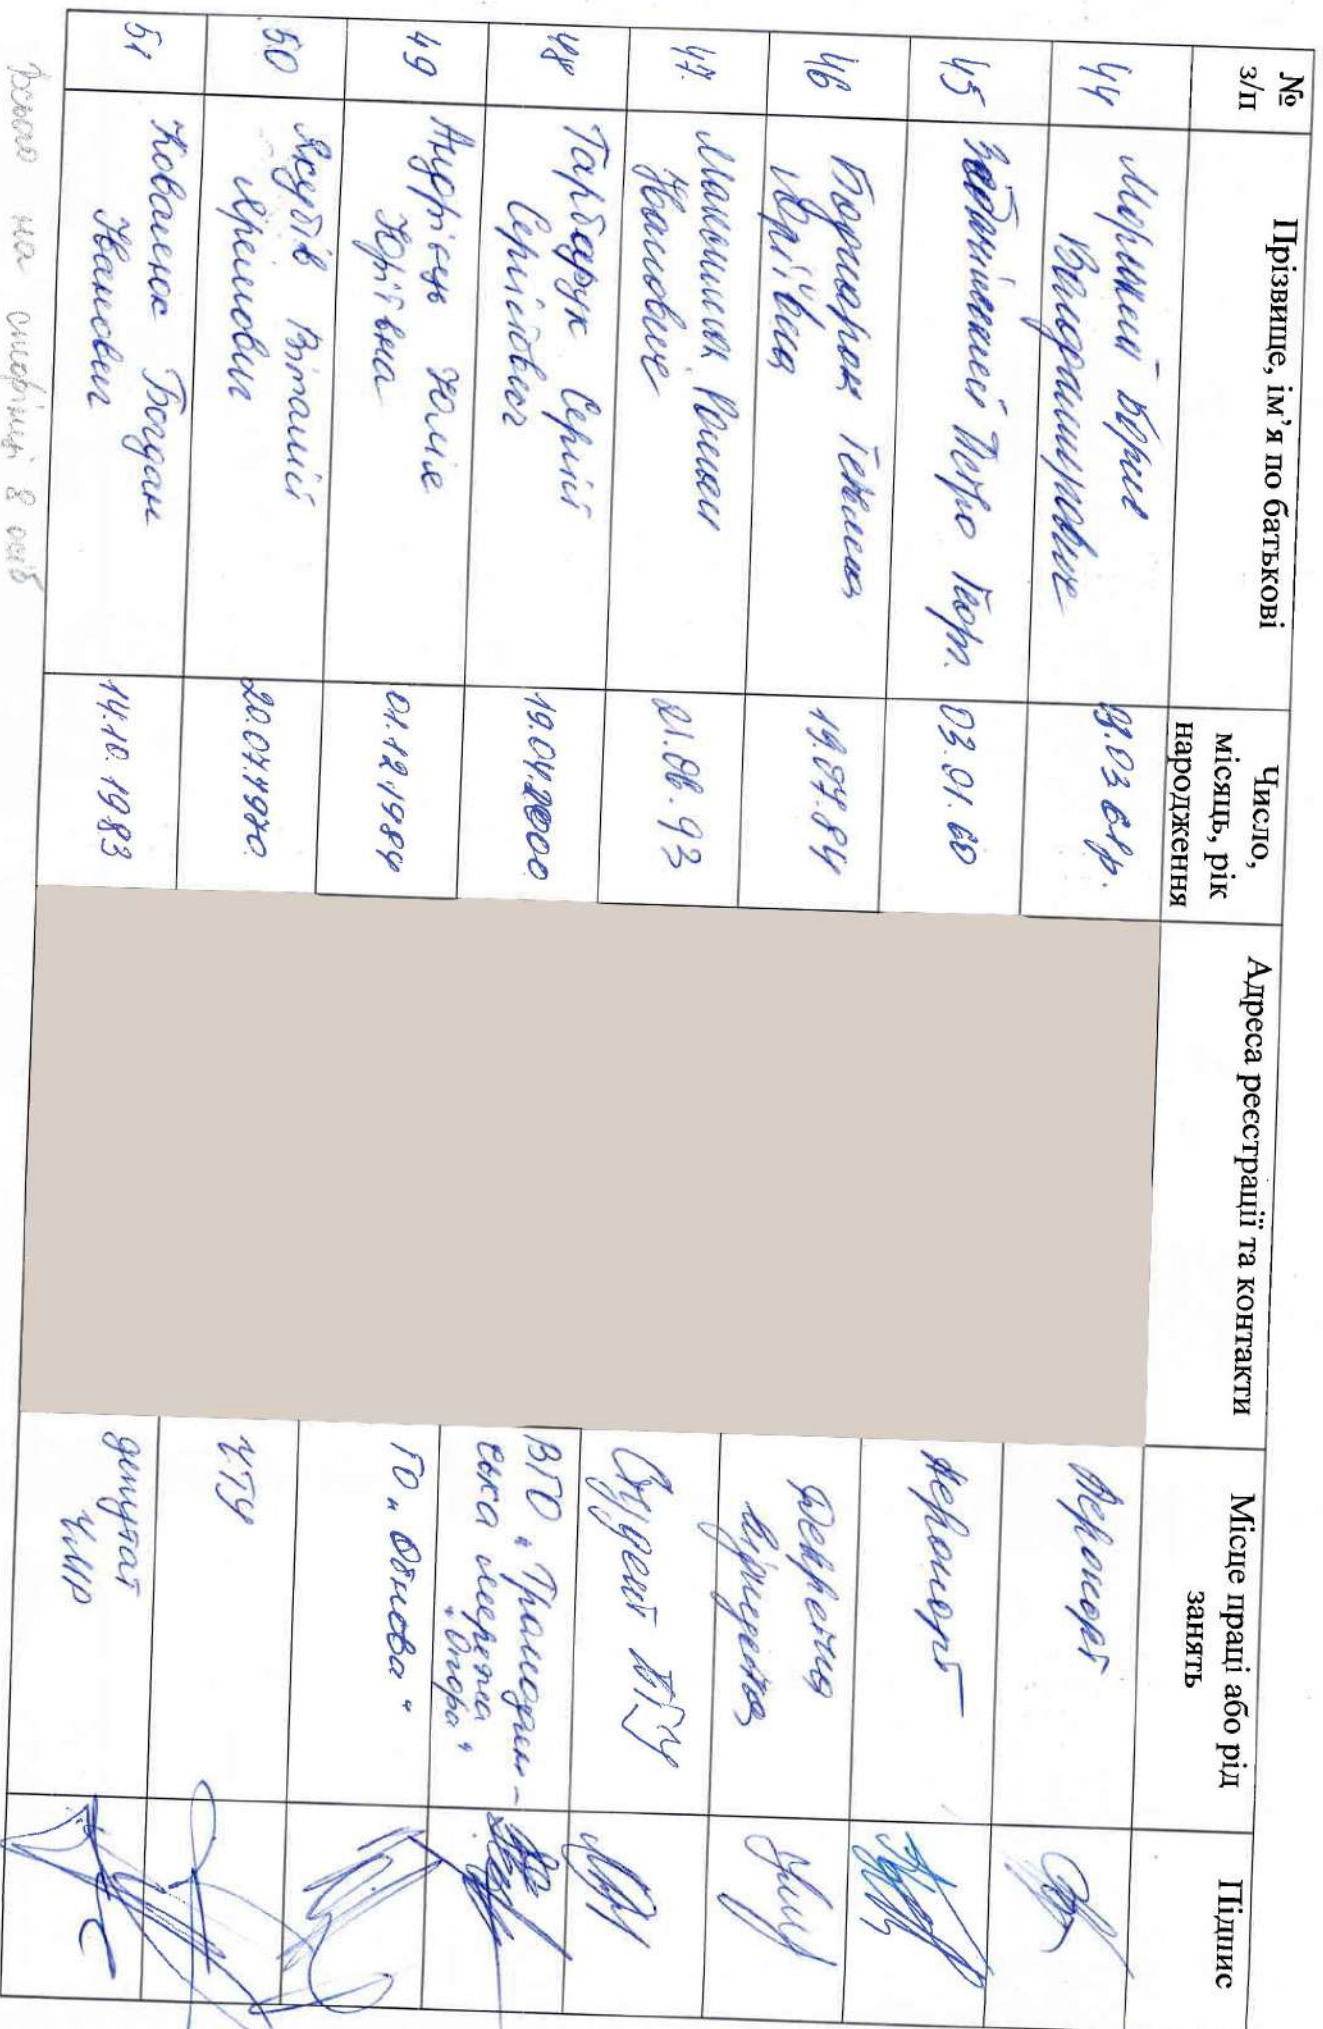 № з/п
Прізвище, ім’я по батькові
Число, місяць, рік народження
Адреса реєстрації та контакти
Місце праці або рід занять
Підпис
44
Борис
Володимирович
03 61р.
Аеропорт
45
Петро Георг.
03.01.60
Аеропорт
46
Боднарюк Тетяна
Юріївна
19.07.84
Декретна
відпустка
47.
Роман
Іванович
21.06.93
Студент
48
Тарбарук Сергій
Сергійович
19.04.2000
ВГО „Громадян-
ська мережа
„Опора“
49
Андрієць Юлія
Юріївна
01.12.1984
ГО „Обнова“
50
Якубів Віталій
Яремович
20.07.1970.
ЧТУ
51
Ковалюк Богдан
Іванович
14.10.1983
депутат
ЧМР
Всього на сторінці 8 осіб